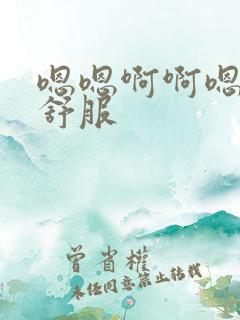 嗯嗯啊啊嗯
舒服
曾省權
未经同意禁止转载